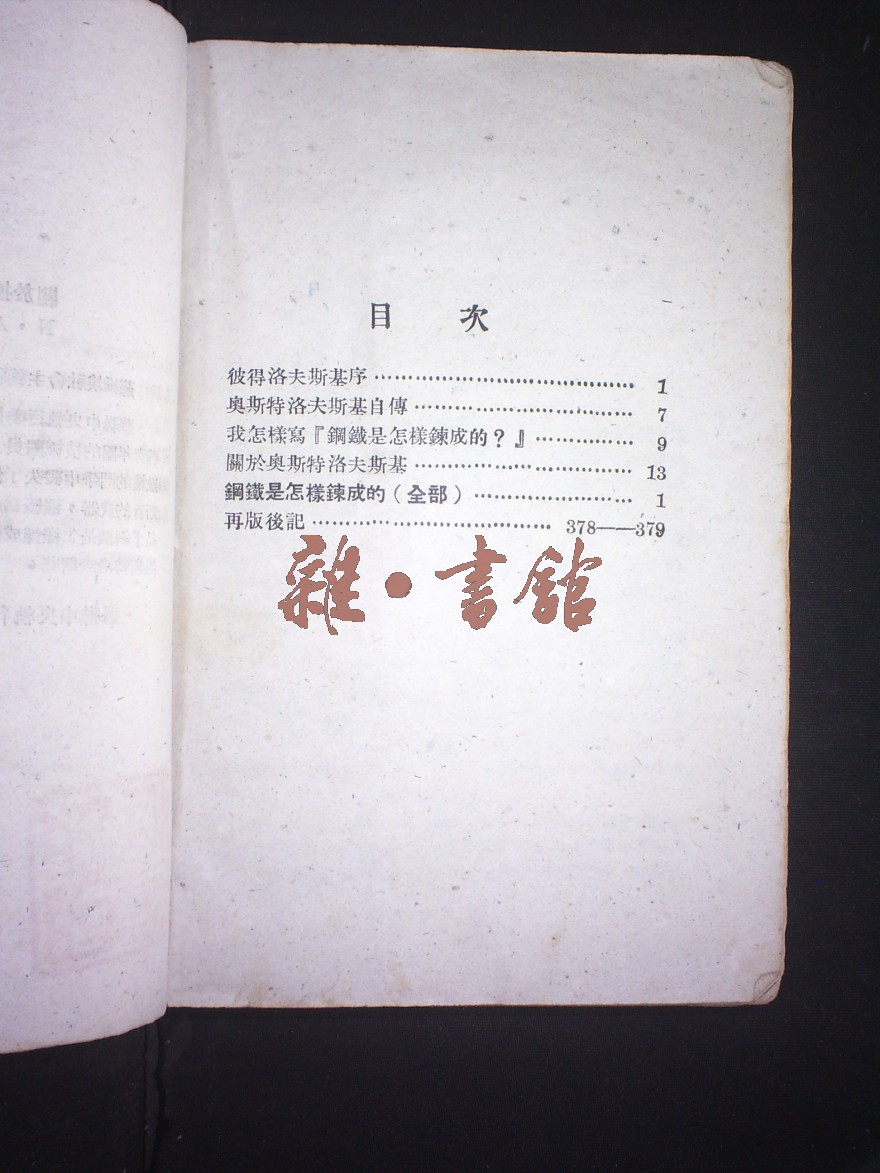 目次
彼得洛夫斯基序………………………………… 1
奧斯特洛夫斯基自傳………………………… 7
我怎樣寫『鋼鐵是怎樣鍊成的？』…………… 9
關於奧斯特洛夫斯基………………………… 13
鋼鐵是怎樣鍊成的（全部）………………… 1
再版後記……………………………… 378——379
雜•書館